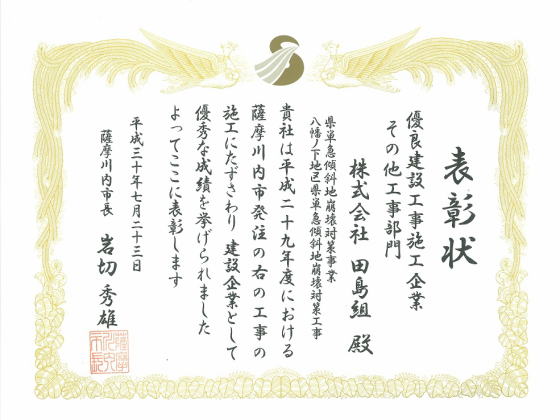 表彰状
優良建設工事施工企業
その他工事部門
株式会社 田島組 殿
県単急傾斜地崩壊対策事業
八幡ノ下地区県単急傾斜地崩壊対策工事
貴社は平成二十九年度における
薩摩川内市発注の右の工事の
施工にたずさわり 建設企業として
優秀な成績を挙げられました
よってここに表彰します
平成三十年七月二十三日
薩摩川内市長 岩切秀雄